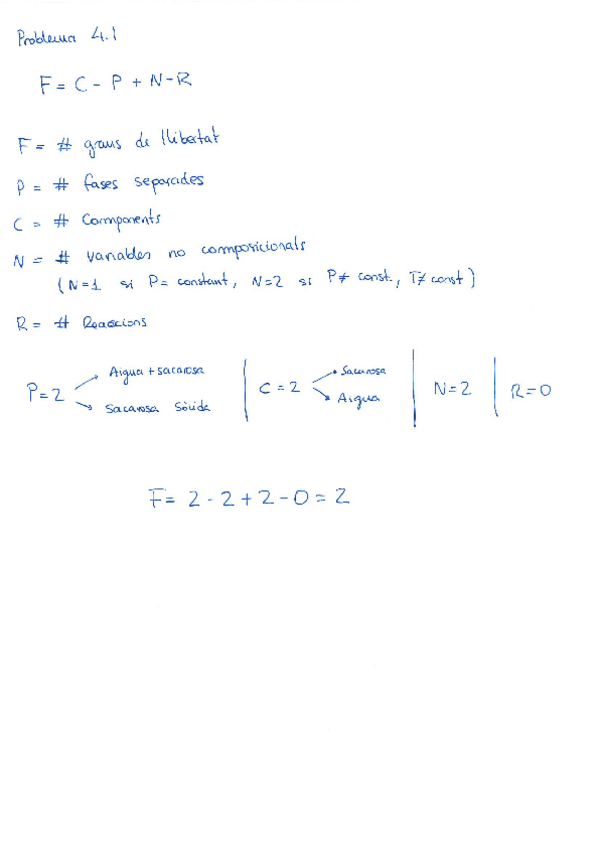 Problema 4.1
F = C - P + N - R
F = # graus de llibertat
P = # fases separades
C = # Components
N = # variables no composicionals
(N=1 si P= constant, N=2 si P≠ const., T≠ const)
R = # Reaccions
P=2 Aigua + sacarosa
Sacarosa sòlida
C = 2 Sacarosa
Aigua
N=2
R=0
F= 2 - 2 + 2 - 0 = 2